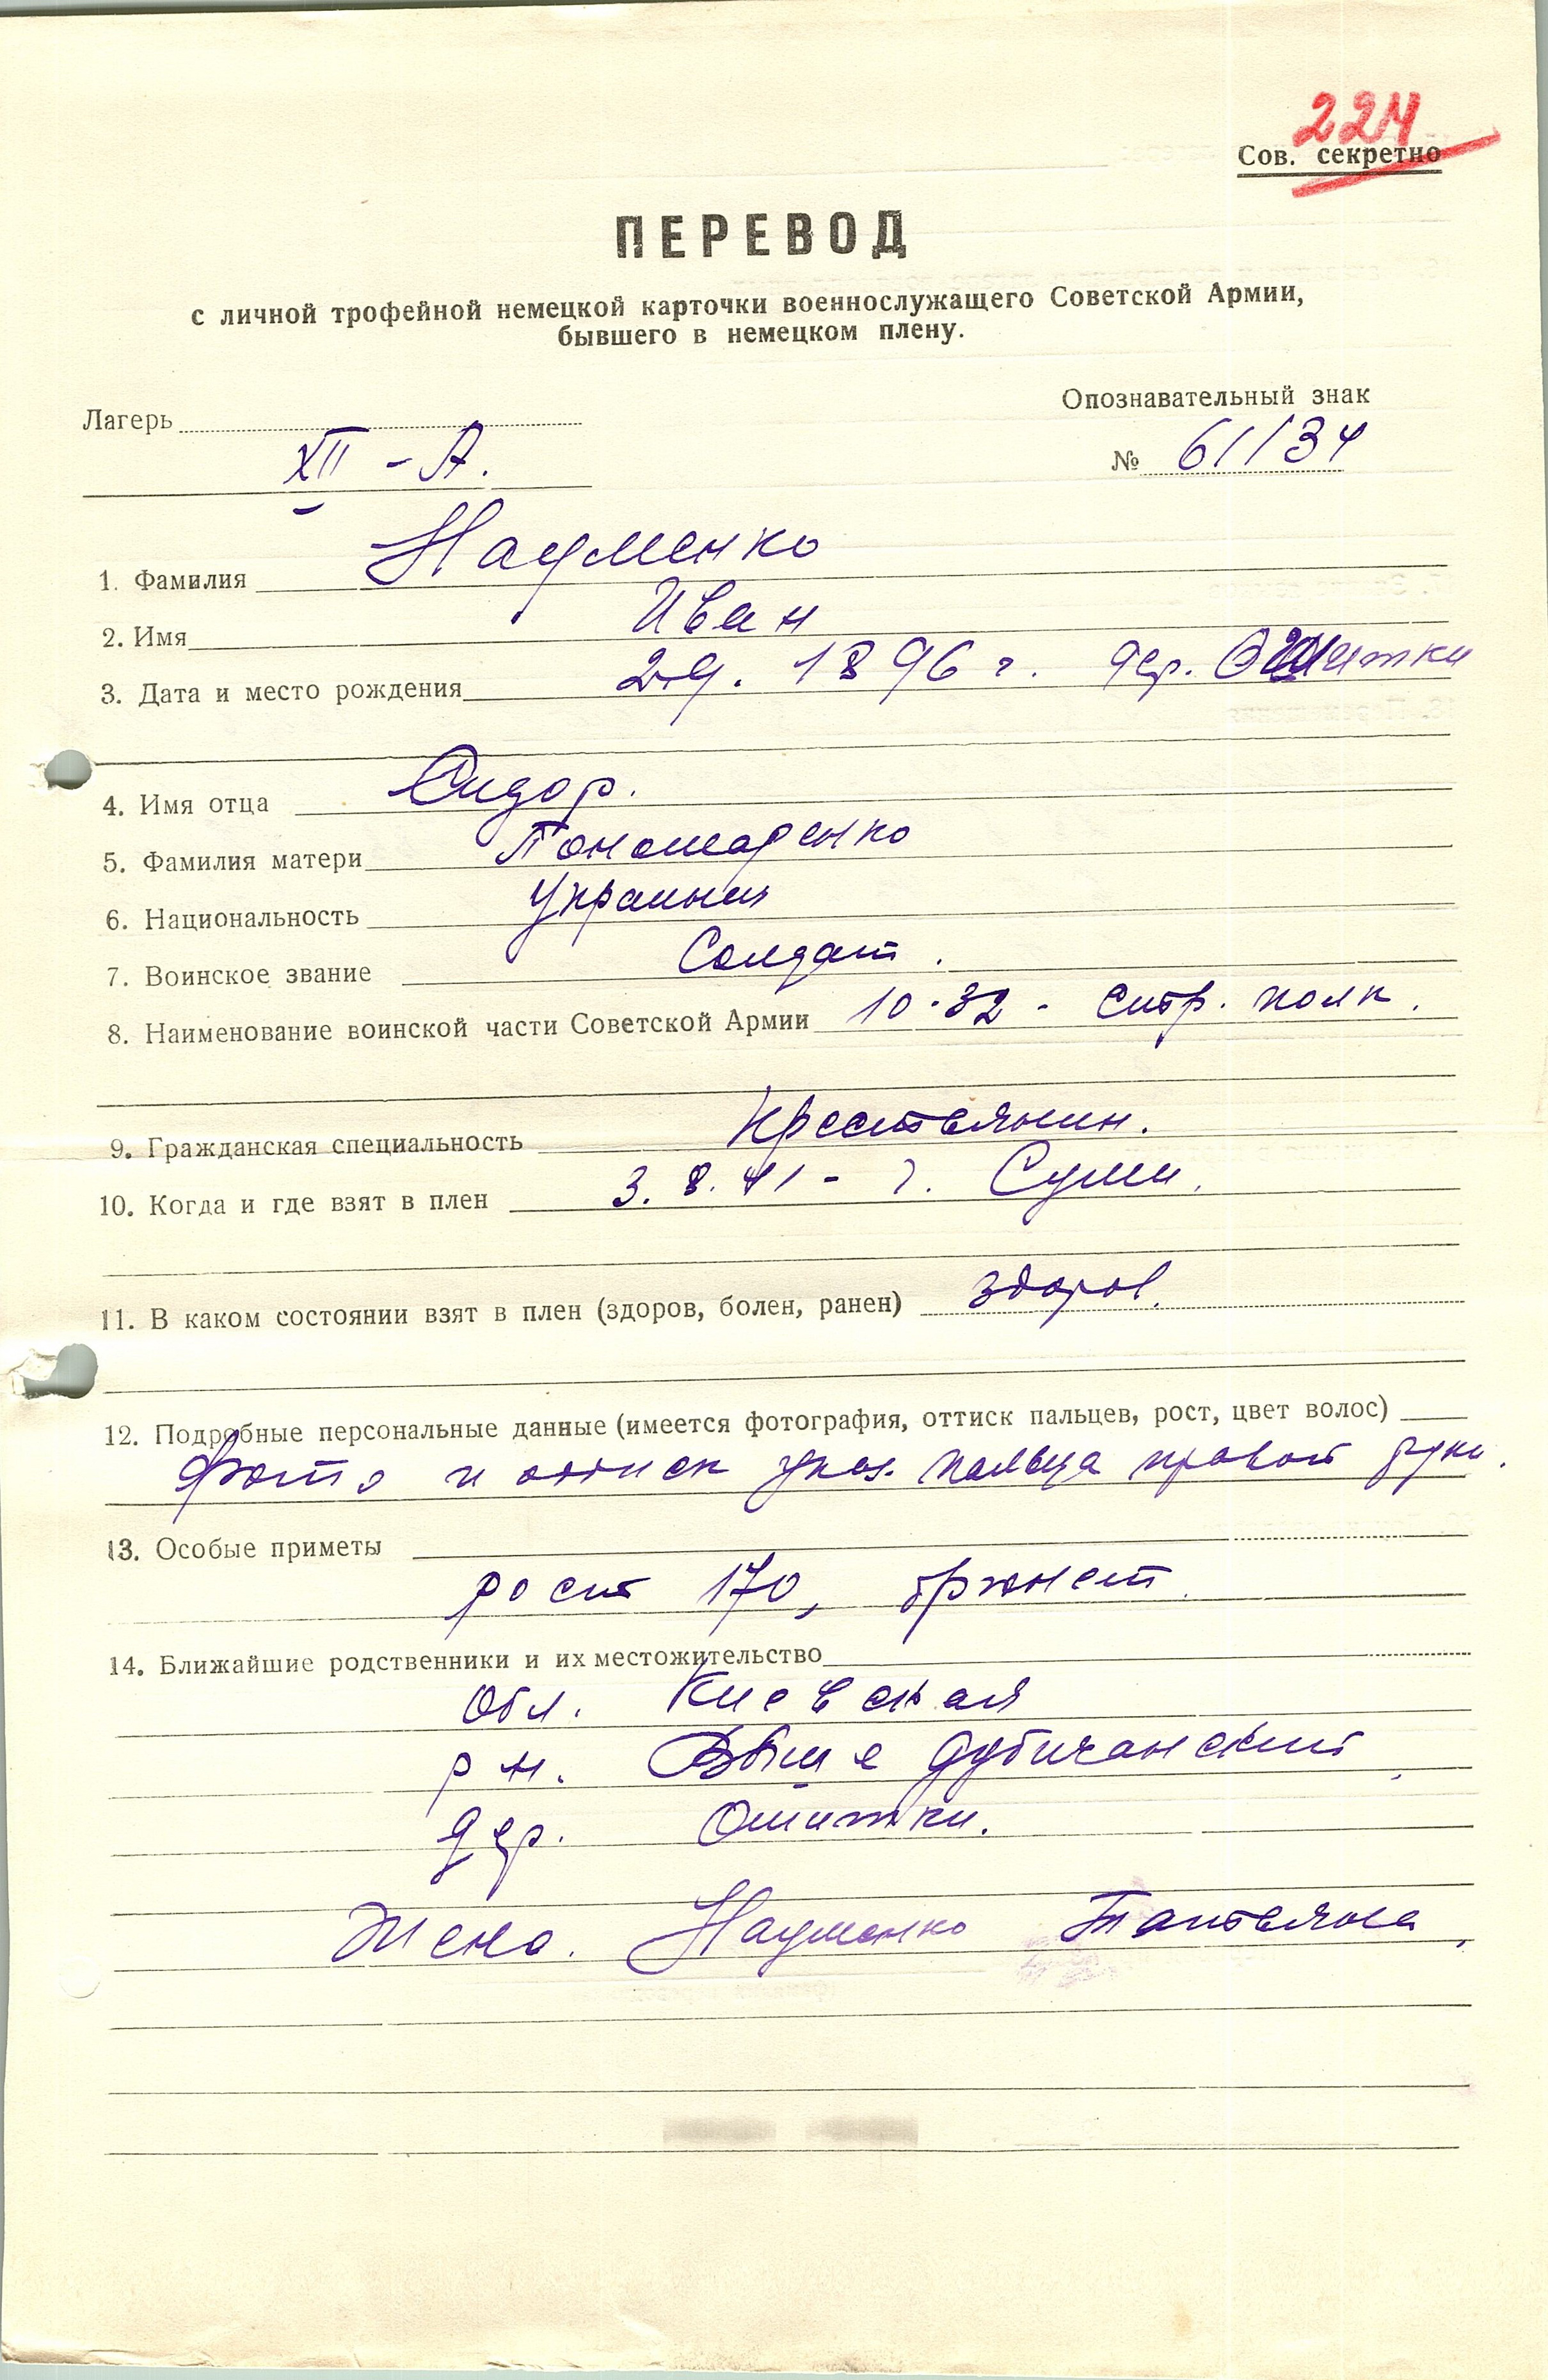 224
Сов. секретно
ПЕРЕВОД
с личной трофейной немецкой карточки военнослужащего Советской Армии,
бывшего в немецком плену.
Лагерь
Опознавательный знак
XII - А.
№ 61134
1. Фамилия Науменко
2. Имя Иван
3. Дата и место рождения 1896 г. дер. Ошитки
4. Имя отца Сидор.
5. Фамилия матери Пономаренко
6. Национальность
7. Воинское звание Солдат.
8. Наименование воинской части Советской Армии 10-32 - стр. полк.
9. Гражданская специальность Крестьянин.
10. Когда и где взят в плен 3. 8. 41 - г. Сумы.
11. В каком состоянии взят в плен (здоров, болен, ранен) здоров.
12. Подробные персональные данные (имеется фотография, оттиск пальцев, рост, цвет волос)
Фото и оттиск указ. пальца правой руки.
13. Особые приметы
рост 170, брюнет.
14. Ближайшие родственники и их местожительство
обл. Киевская
р-н. Выше Дубичанский
дер. Ошитки.
Жена. Науменко